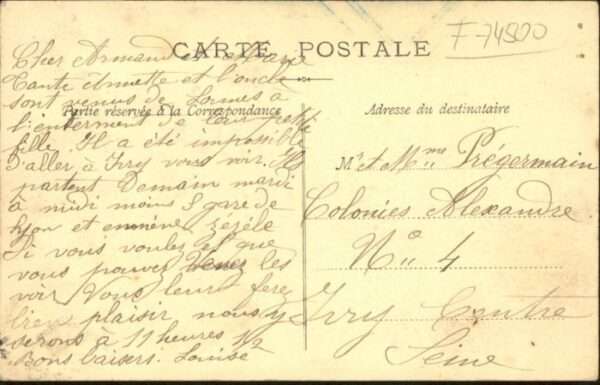 F-74500
CARTE POSTALE
Cher Armand et Marie
Tante Annette et l'oncle
sont venus de Lormes à
Partie réservée à la Correspondance
l'enterment de leur petite
fille. Il a été impossible
d'aller à Ivry vous voir. Ils
partent Demain mardi
à midi moins 5 gare de
Lyon et emmène Zézèle
Si vous voulez et que
vous pouvez Venez les
voir Vous leur ferez
bien plaisir nous y
serons à 11 heures 1/2
Bons baisers. Louise
Adresse du destinataire
Mr et Mme Prégermain
Colonies Alexandre
No 4
Ivry Centre
Seine